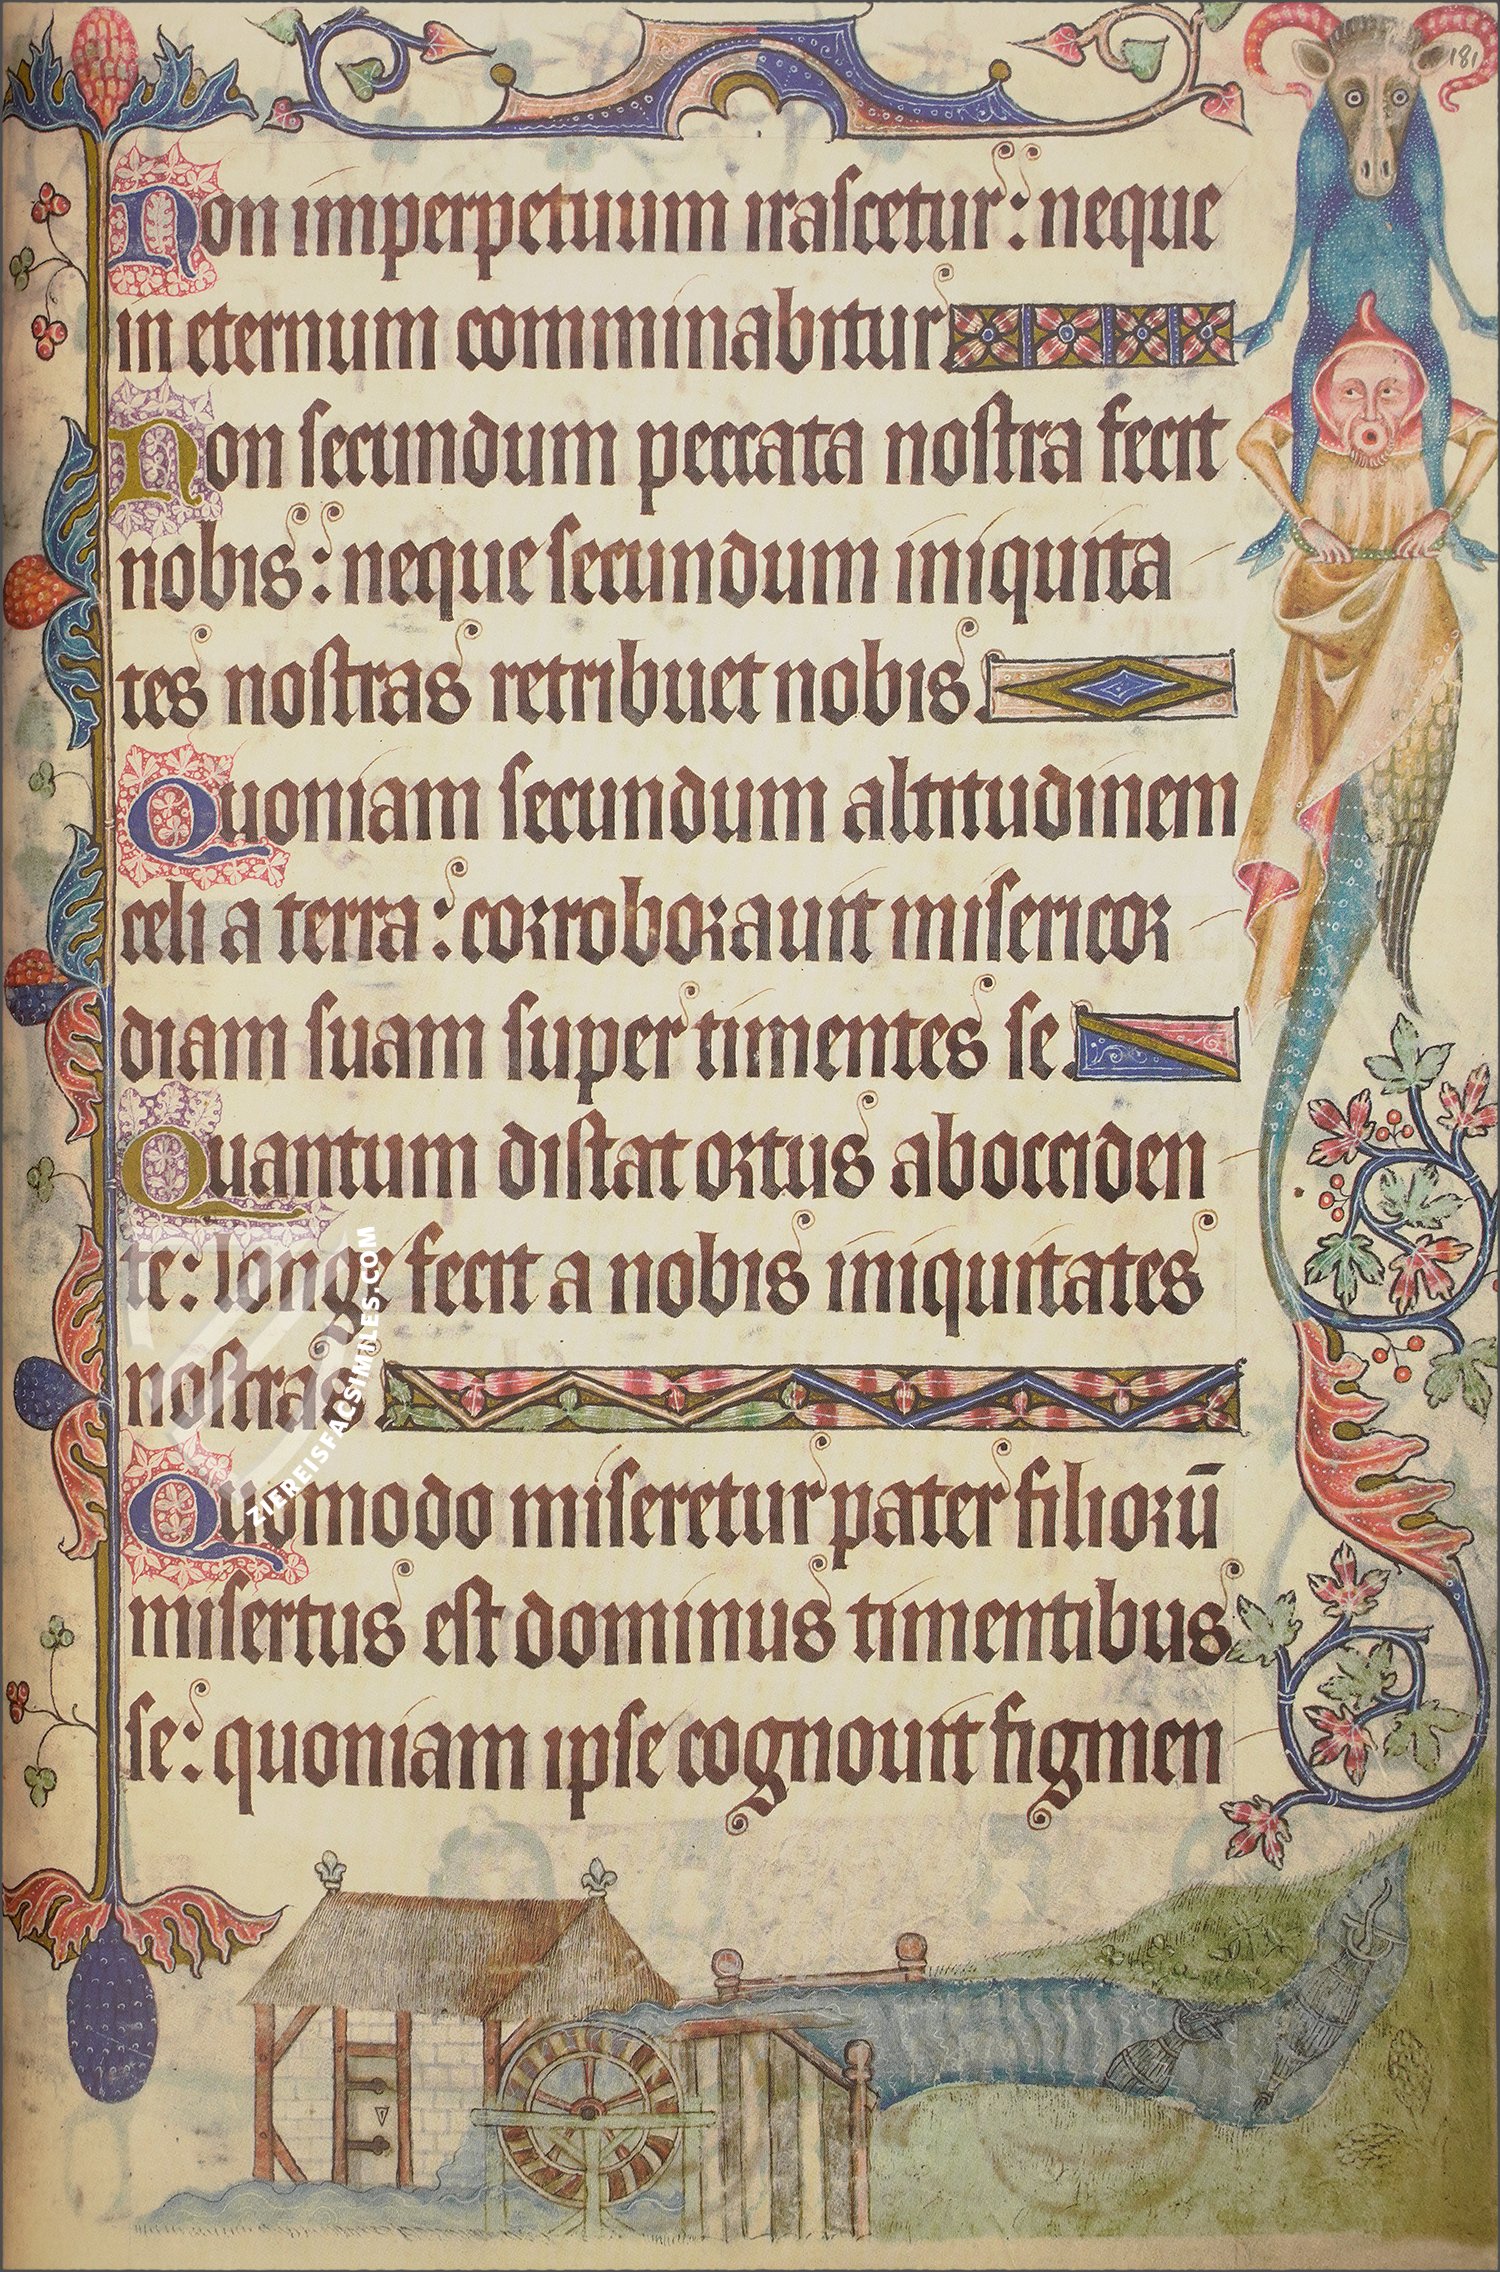 181
Non imperpetuum irascetur : neque
in eternum comminabitur
Non secundum peccata nostra fecit
nobis : neque secundum iniquita
tes nostras retribuet nobis.
Quoniam secundum altitudinem
celi a terra : corroborauit misericor
diam suam super timentes se.
Quantum distat ortus ab occiden
te : longe fecit a nobis iniquitates
nostras.
Quomodo miseretur pater filiorū
misertus est dominus timentibus
se : quoniam ipse cognouit figmen
ZIEREISFACSIMILES.COM